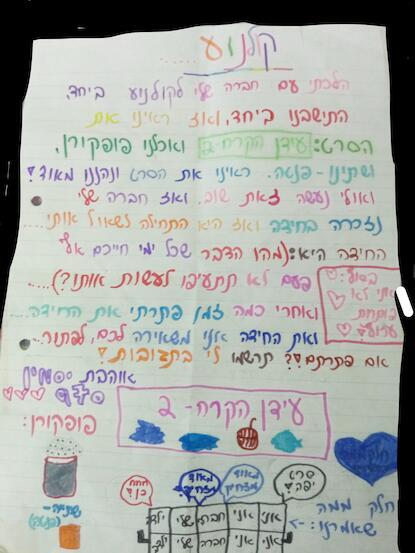 קולנוע.....
הלכתי עם חברה שלי לקולנוע ביחד,
התישבנו ביחד, ואז ראינו את
הסרט: עידן הקרח-2 ואוכלנו פופקורן,
ושתינו-פנטה. ראינו את הסרט ונהננו מאוד!
ואולי נעשה זאת שוב. ואז חברה שלי
נזכרה בחידה ואז היא התחילה לשאול אותי....
החידה היא: (מהו הדבר שכל ימי חייכם אף
פעם לא תתעיפו לעשות אותו?)....
ואחרי כמה זמן פתרתי את החידה...
ואת החידה אני משאירה לכם, לפתור...
אם פתרתם?? תרשמו לי בתגובות!
אוהבת
בסוף:
אני לא
פותרת
עידן הקרח-2
פופקורן:
שתייה-
(פנטה)
חלק ממה
שאמרנו:-
סרט
יפה!
מאוד
מצחיק
מאוד
מצחיק!
נכון?
ילד שלי חברה אני אני
ילד שלי חברה אני אני